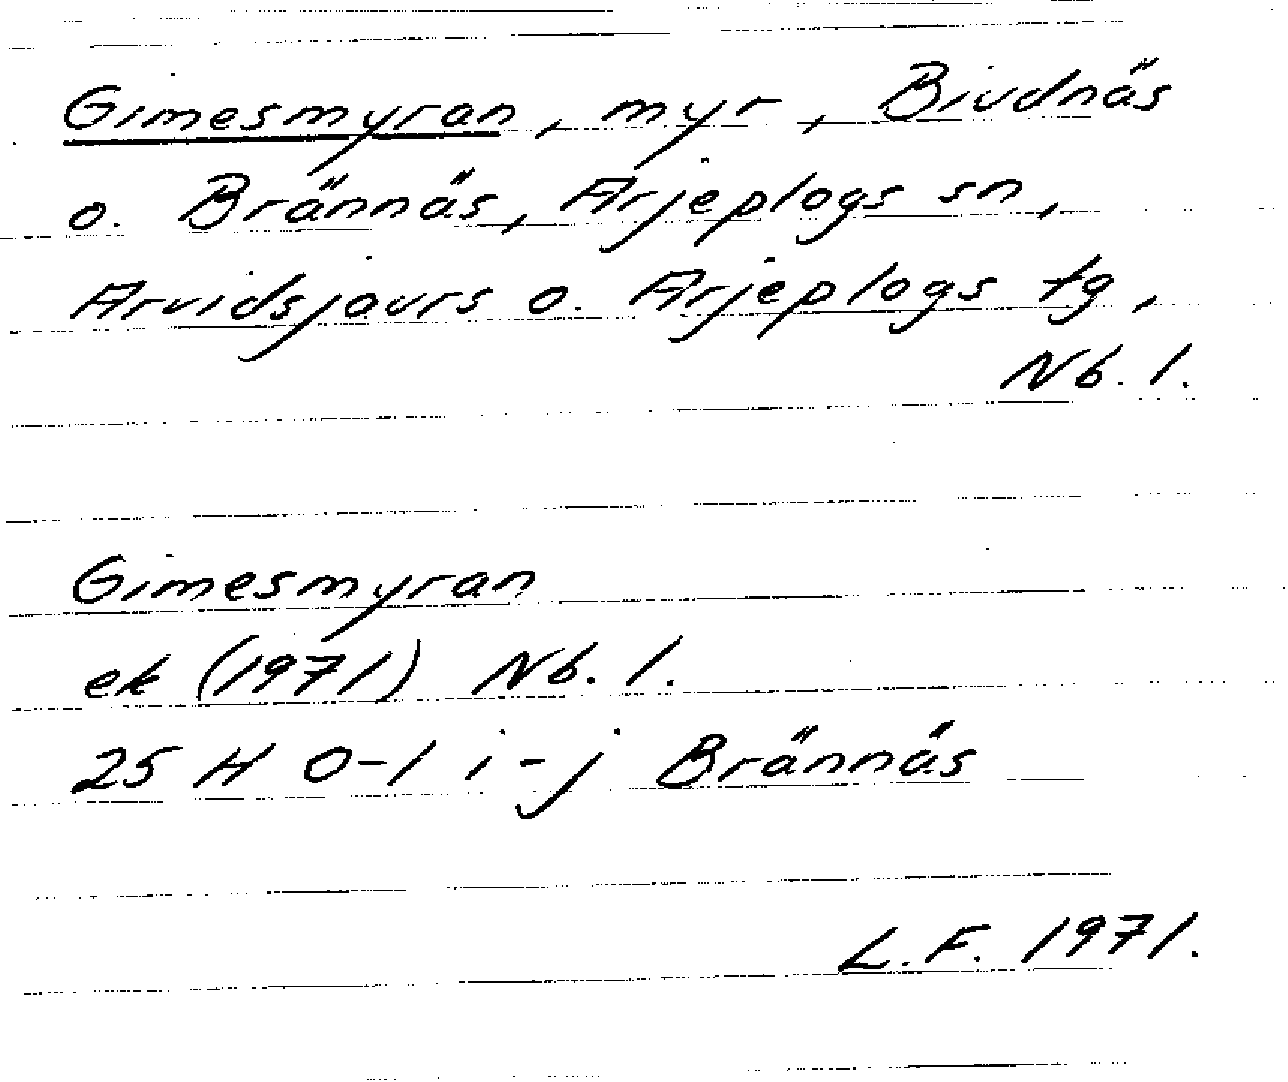 Gimesmyran, myr, Biudnäs
o. Brännäs, Arjeplogs sn,
Arvidsjaurs o. Arjeplogs tg,
Nb. l.
Gimesmyran
ek (1971) Nb. l.
25 H 0-1 i-j Brännäs
L.F. 1971.